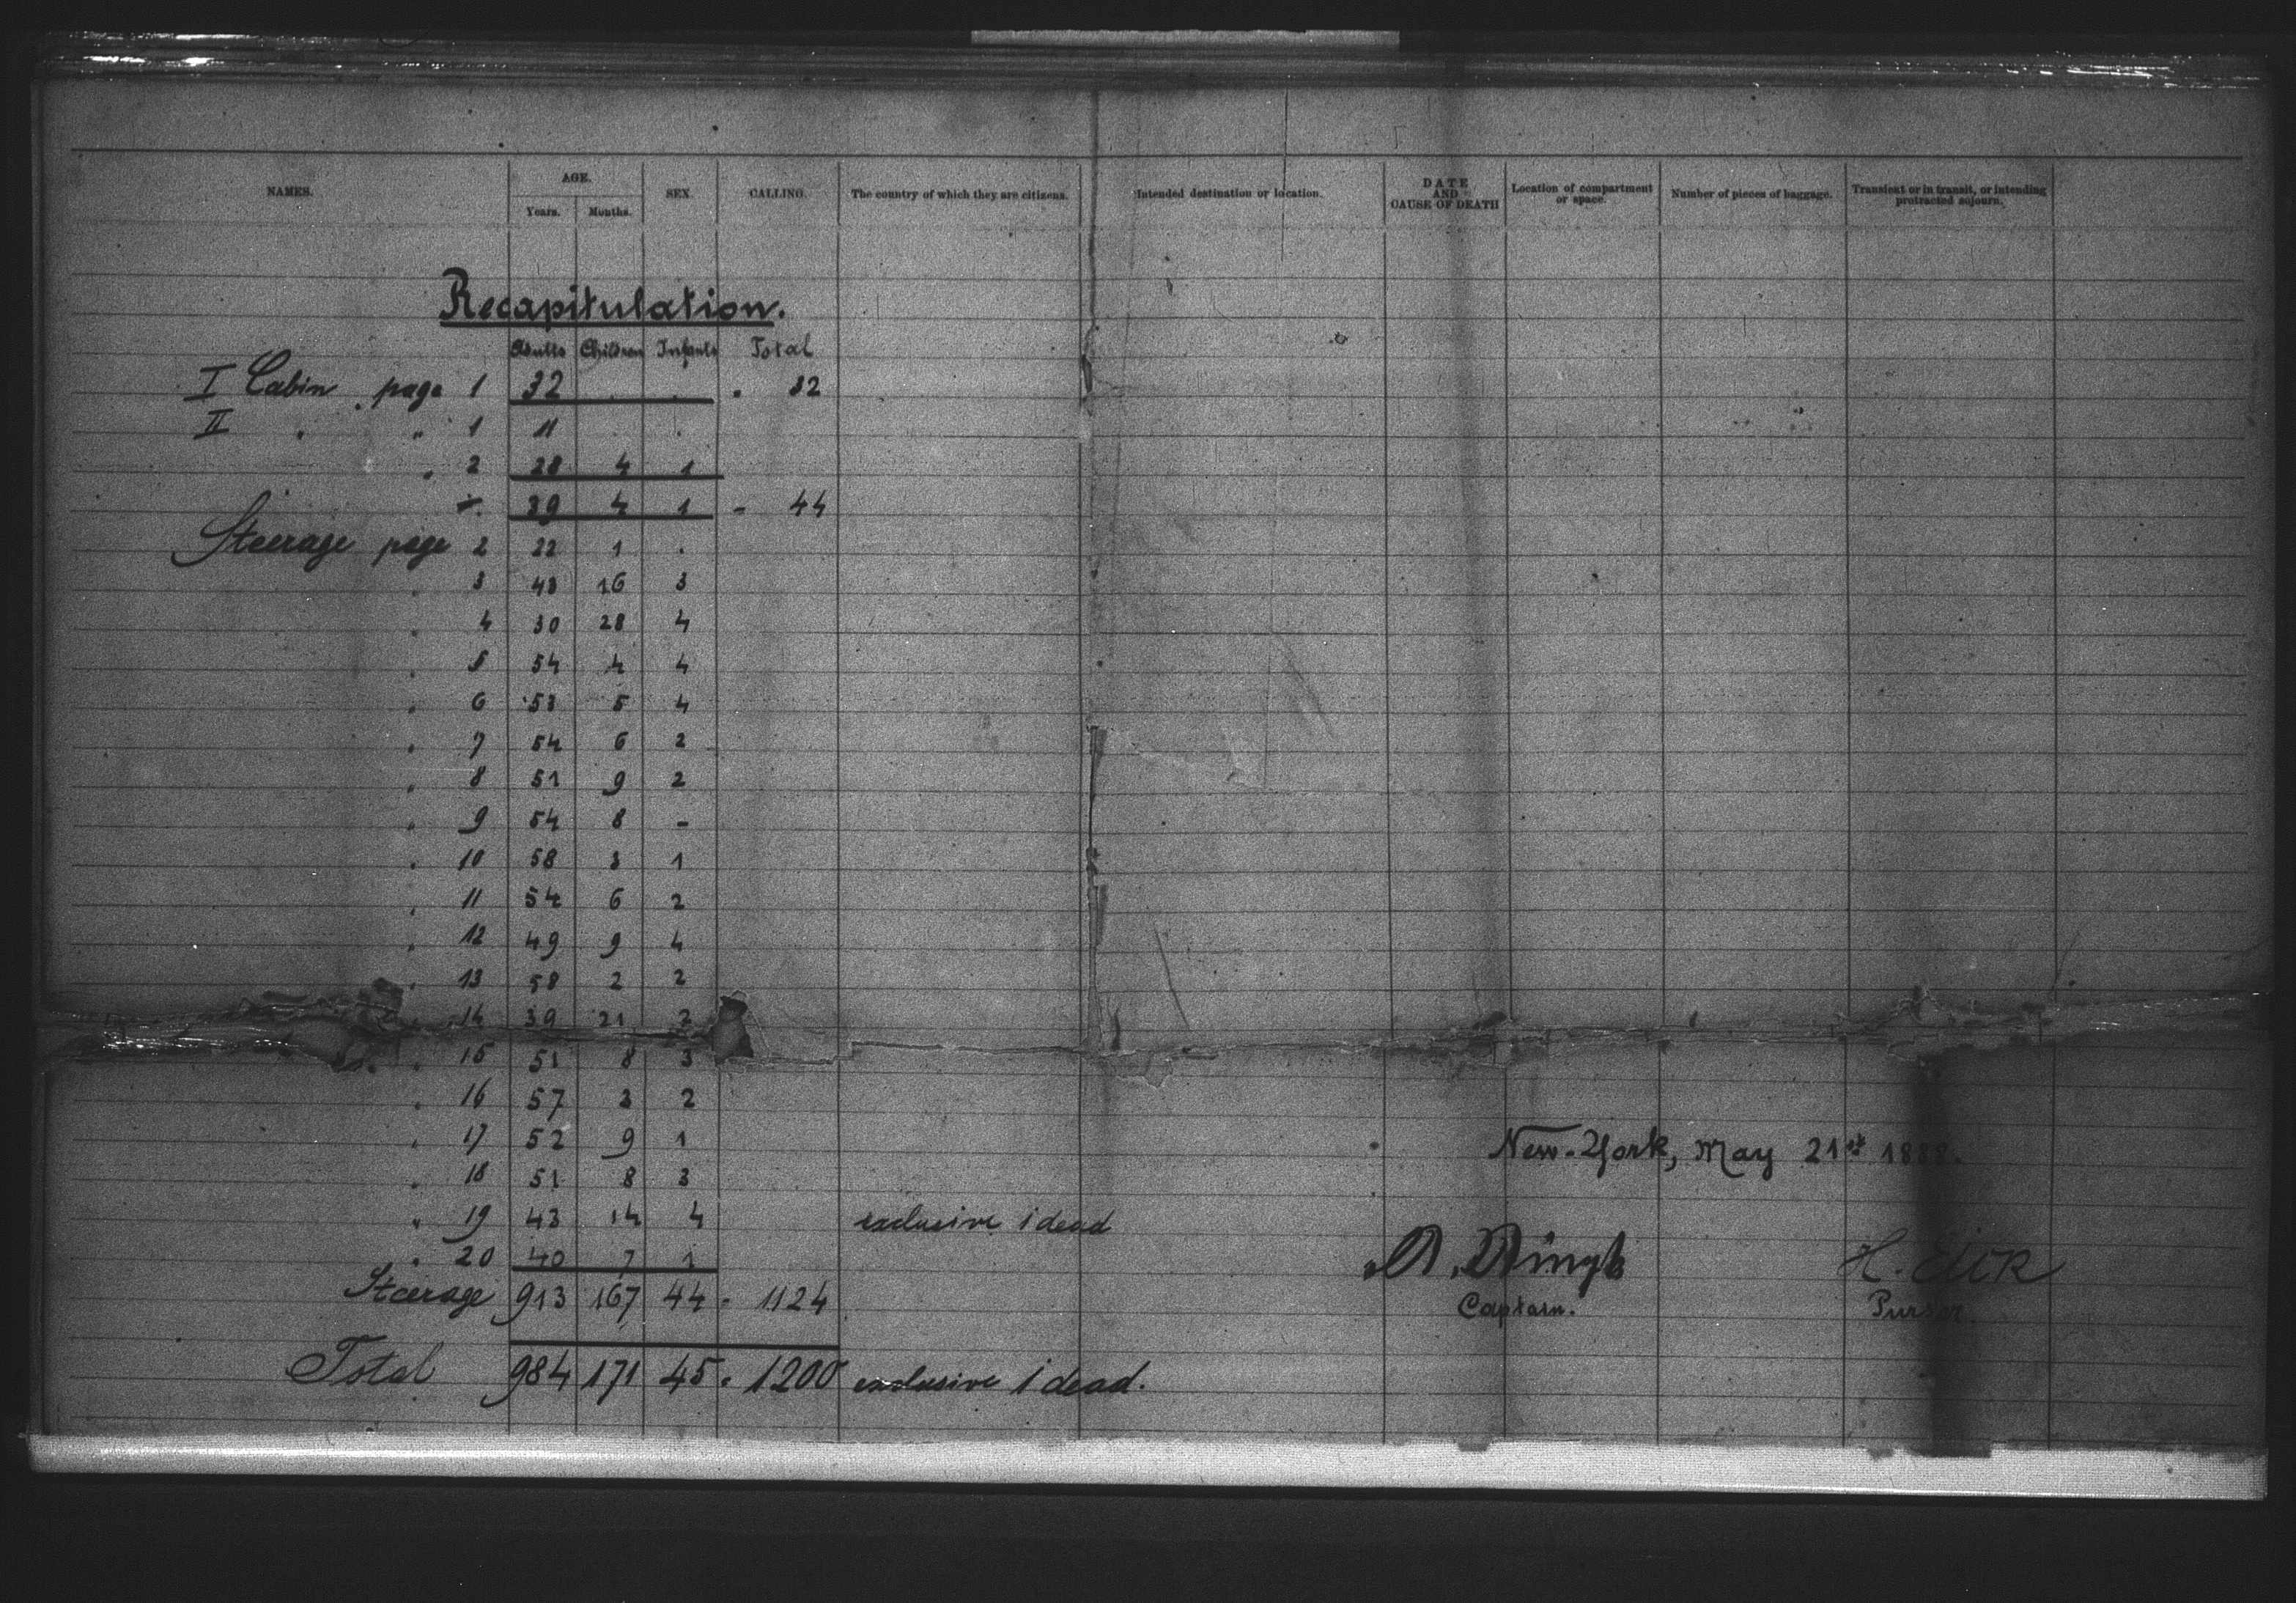 NAMES. AGE. SEX. CALLING. The country of which they are citizens. Intended destination or location. DATE AND CAUSE OF DEATH Location of compartment or space. Number of pieces of baggage. Transient or in transit, or intending protracted sojourn.
Years. Months.
Recapitulation.
Adults Children Infants Total
I Cabin page 1 32 . . . 32
II " " 1 11 . .
" 2 28 4 1
39 4 1 - 44
Steerage page 2 22 1 .
" 3 43 16 3
" 4 30 28 4
" 5 54 4 4
" 6 53 5 4
" 7 54 6 2
" 8 51 9 2
" 9 54 8 -
" 10 58 3 1
" 11 54 6 2
" 12 49 9 4
" 13 58 2 2
" 14 39 21 2
" 15 51 8 3
" 16 57 3 2
" 17 52 9 1
" 18 51 8 3
" 19 43 14 4 exclusive 1 dead
" 20 40 7 1
Steerage 913 167 44 - 1124
Total 984 171 45 - 1200 exclusive 1 dead.
New-York, May 21st 1888.
Captain. Purser